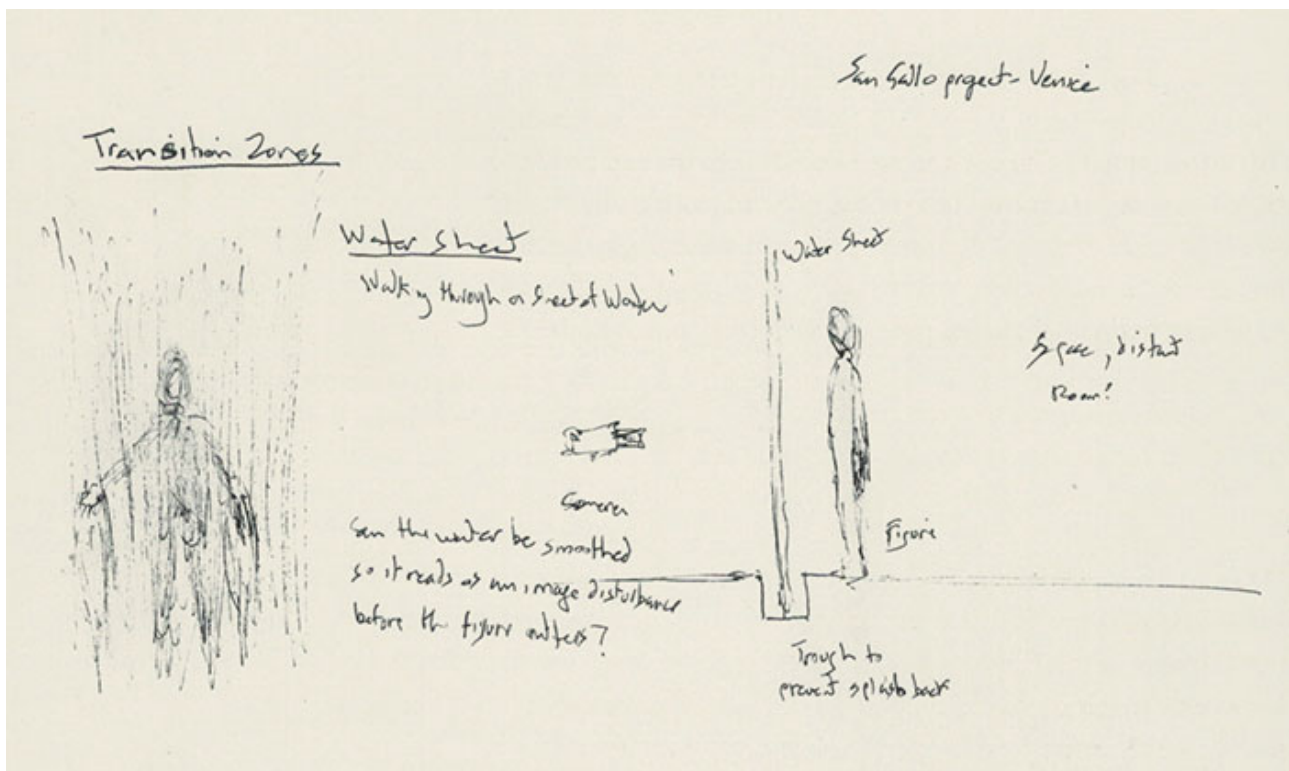 San Gallo project - Venice
Transition Zones
Water Sheet
Walking through a sheet of Water
Water Sheet
Space, distant
Room!
Camera
Can the water be smoothed
so it reads as an image disturbance
before the figure enters?
Figure
Trough to
prevent splash back